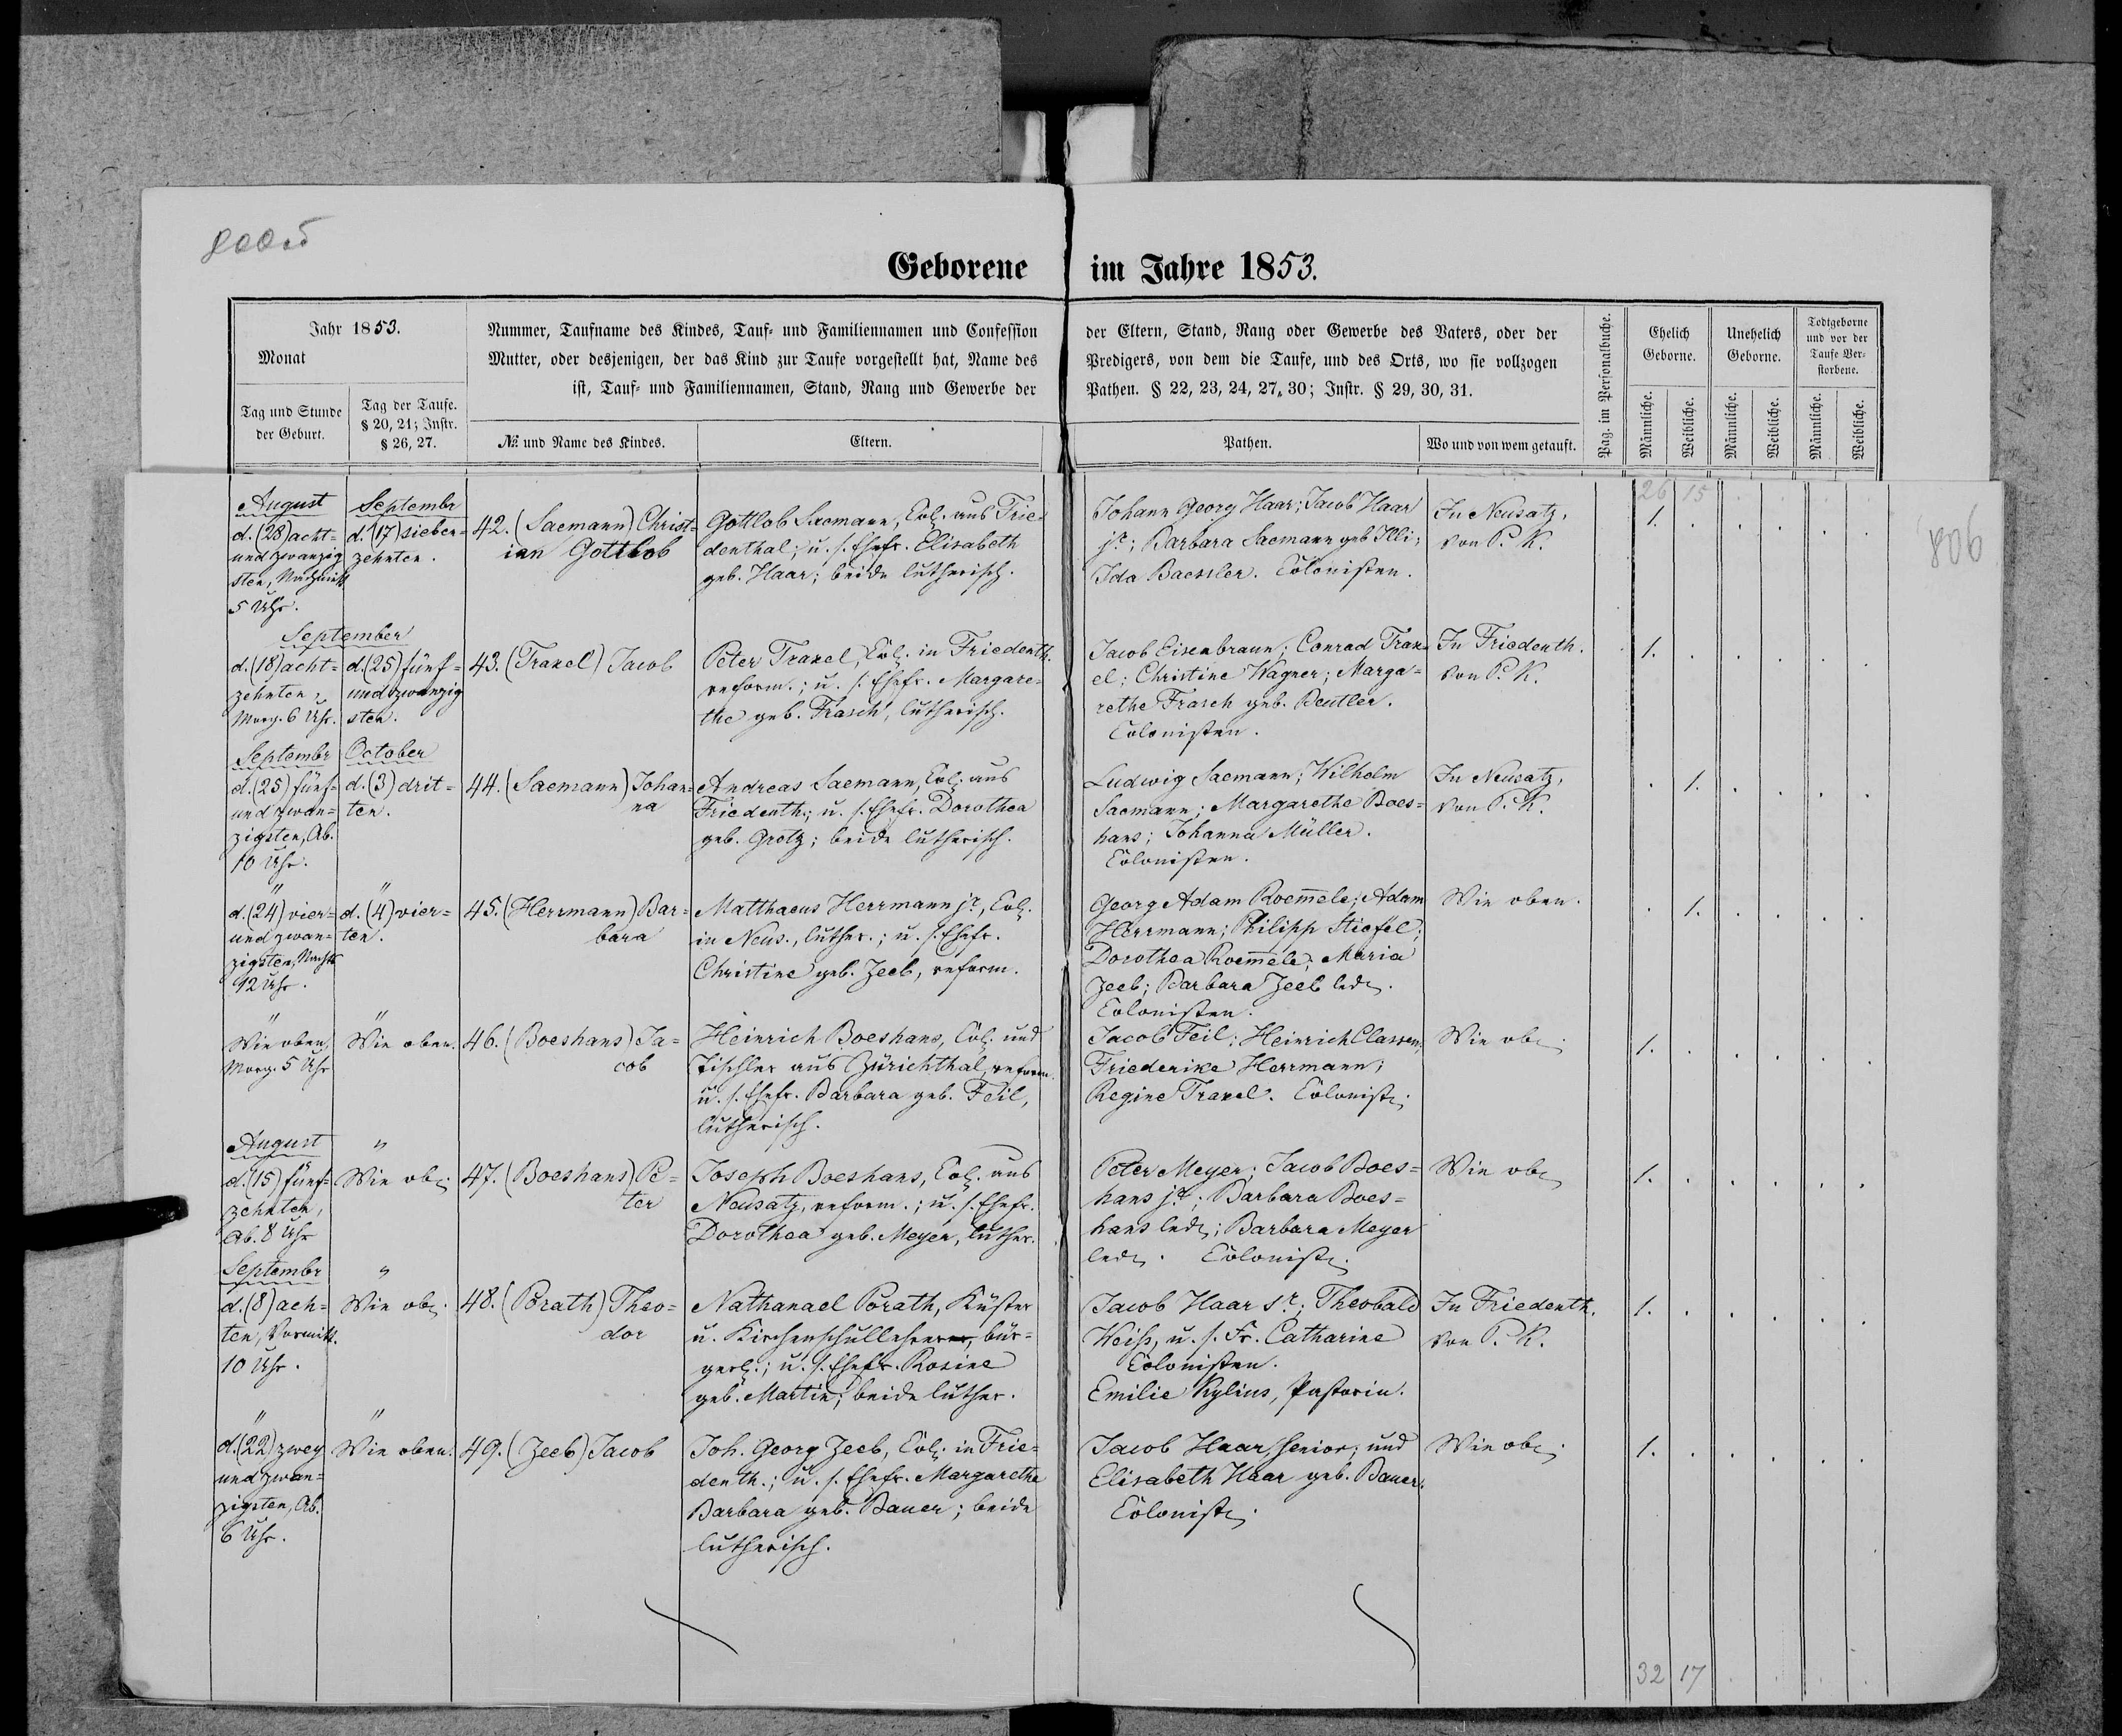 Geborene im Jahre 1853.
806
Jahr 1853.
Monat
Tag und Stunde
der Geburt.
Tag der Taufe.
§ 20, 21; Instr.
§ 26, 27.
Nummer, Taufname des Kindes, Tauf- und Familiennamen und Confession
Mutter, oder desjenigen, der das Kind zur Taufe vorgestellt hat, Name des
ist, Tauf- und Familiennamen, Stand, Rang und Gewerbe der
№ und Name des Kindes.
Eltern.
der Eltern, Stand, Rang oder Gewerbe des Vaters, oder der
Predigers, von dem die Taufe, und des Orts, wo sie vollzogen
Pathen. § 22, 23, 24, 27, 30; Instr. § 29, 30, 31.
Pathen.
Wo und von wem getauft.
Pag. im Personalbuche.
Ehelich
Geborne.
Unehelich
Geborne.
Todtgeborne
und vor der
Taufe Ver-
storbene.
Männliche.
Weibliche.
Männliche.
Weibliche.
Männliche.
Weibliche.
26 15
August
d. (28) acht=
und zwanzig
sten, Nachmitt.
5 Uhr.
Septembr
d. (17) sieben=
zehnten.
42. (Saemann) Christ=
ian Gottlob
Gottlob Saemann, Col. aus Frie=
denthal; u. s. Ehefr. Elisabeth
geb. Haar; beide lutherisch.
Johann Georg Haar; Jacob Haar
jr.; Barbara Saemann geb Illi;
Ida Baessler. Colonisten.
In Neusatz,
von P. K.
1. . . . . .
September
d. (18) acht=
zehnten,
Morg. 6 Uhr.
d. (25) fünf=
und zwanzig
sten.
43. (Traxel) Jacob
Peter Traxel, Col. in Friedenth.
reform.; u. s. Ehefr. Margare=
the geb. Frasch, lutherisch.
Jacob Eisenbraun; Conrad Trax=
el; Christine Wagner; Marga=
rethe Frasch geb. Beutler.
Colonisten.
In Friedenth.
von P. K.
1. . . . . .
Septembr
d. (25) fünf=
und zwan=
zigsten, Ab.
10 Uhr.
October
d. (3) drit=
ten.
44. (Saemann) Johan=
na
Andreas Saemann, Col. aus
Friedenth.; u. s. Ehefr. Dorothea
geb. Grotz; beide lutherisch.
Ludwig Saemann; Wilhelm
Saemann; Margarethe Boes=
hans; Johanna Müller.
Colonisten.
In Neusatz,
von P. K.
. 1. . . . .
"
d. (24) vier=
und zwan=
zigsten, Nachts
12 Uhr.
"
d. (4) vier=
ten.
45. (Herrmann) Bar=
bara
Matthaeus Herrmann jr., Col.
in Neus., luther.; u. s. Ehefr.
Christine geb. Zeeb, reform.
Georg Adam Roem̄ele; Adam
Herrmann; Philipp Stiefel;
Dorothea Roem̄ele; Maria
Zeeb; Barbara Zeeb led.
Colonisten.
Wie oben.
. 1. . . . .
"
Wie oben,
Morg. 5 Uhr
"
Wie oben.
46. (Boeshans) Ja=
cob
Heinrich Boeshans, Col. und
Tischler aus Zürichthal, reform.
u. s. Ehefr. Barbara geb. Feil,
lutherisch.
Jacob Feil; Heinrich Classen;
Friederike Herrmann;
Regine Traxel. Coloniste.
Wie oben
1. . . . . .
August
d. (15) fünf=
zehnten,
Ab. 8 Uhr
"
Wie oben
47. (Boeshans) Pe=
ter
Joseph Boeshans, Col. aus
Neusatz, reform.; u. s. Ehefr.
Dorothea geb. Meyer, luther.
Peter Meyer; Jacob Boes=
hans jr.; Barbara Boes=
hans led.; Barbara Meyer
led. Colonist.
Wie oben
1. . . . . .
Septembr
d. (8) ach=
ten, Vormitt.
10 Uhr.
"
Wie oben.
48. (Porath) Theo=
dor
Nathanael Porath, Küster
u. Kirchenschullehrer, bür=
gerl.; u. s. Ehefr. Rosine
geb. Martin; beide luther.
Jacob Haar sr.; Theobald
Weiss, u. s. Fr. Catharine
Colonisten.
Emilie Kylius, Pastorin.
In Friedenth.
von P. K.
1. . . . . .
"
d. (22) zwey
und zwan=
zigsten, Ab.
6 Uhr.
"
Wie oben.
49. (Zeeb) Jacob
Joh. Georg Zeeb, Col. in Frie=
denth.; u. s. Ehefr. Margarethe
Barbara geb. Bauer; beide
lutherisch.
Jacob Haar senior; und
Elisabeth Haar geb. Bauer.
Colonist.
Wie oben.
1. . . . . .
32 17